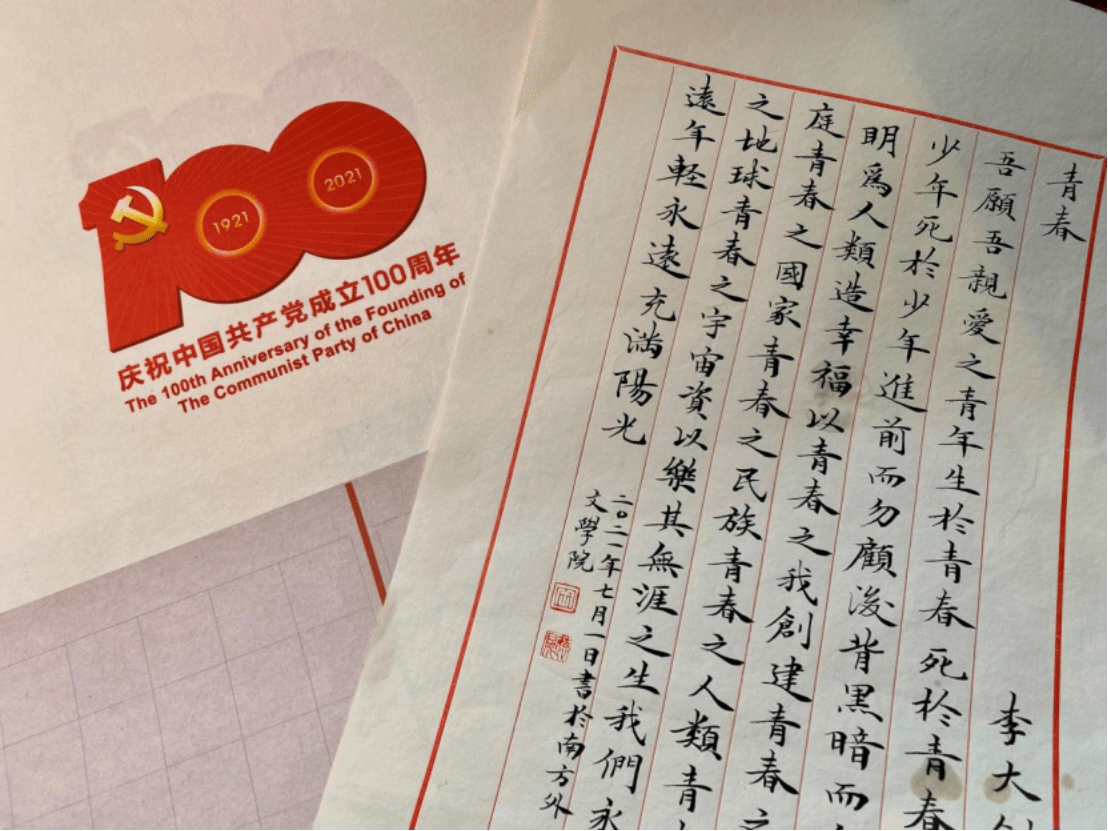 100
1921
2021
庆祝中国共产党成立100周年
The 100th Anniversary of the Founding of
The Communist Party of China
青春 李大
吾願吾親愛之青年生於青春死於青春
少年死於少年進前而勿顧後背黑暗而
明爲人類造幸福以青春之我創建青春之
庭青春之國家青春之民族青春之人類青
之地球青春之宇宙資以樂其無涯之生我們永
遠年輕永遠充滿陽光
二〇二一年七月一日書於南方外
文學院